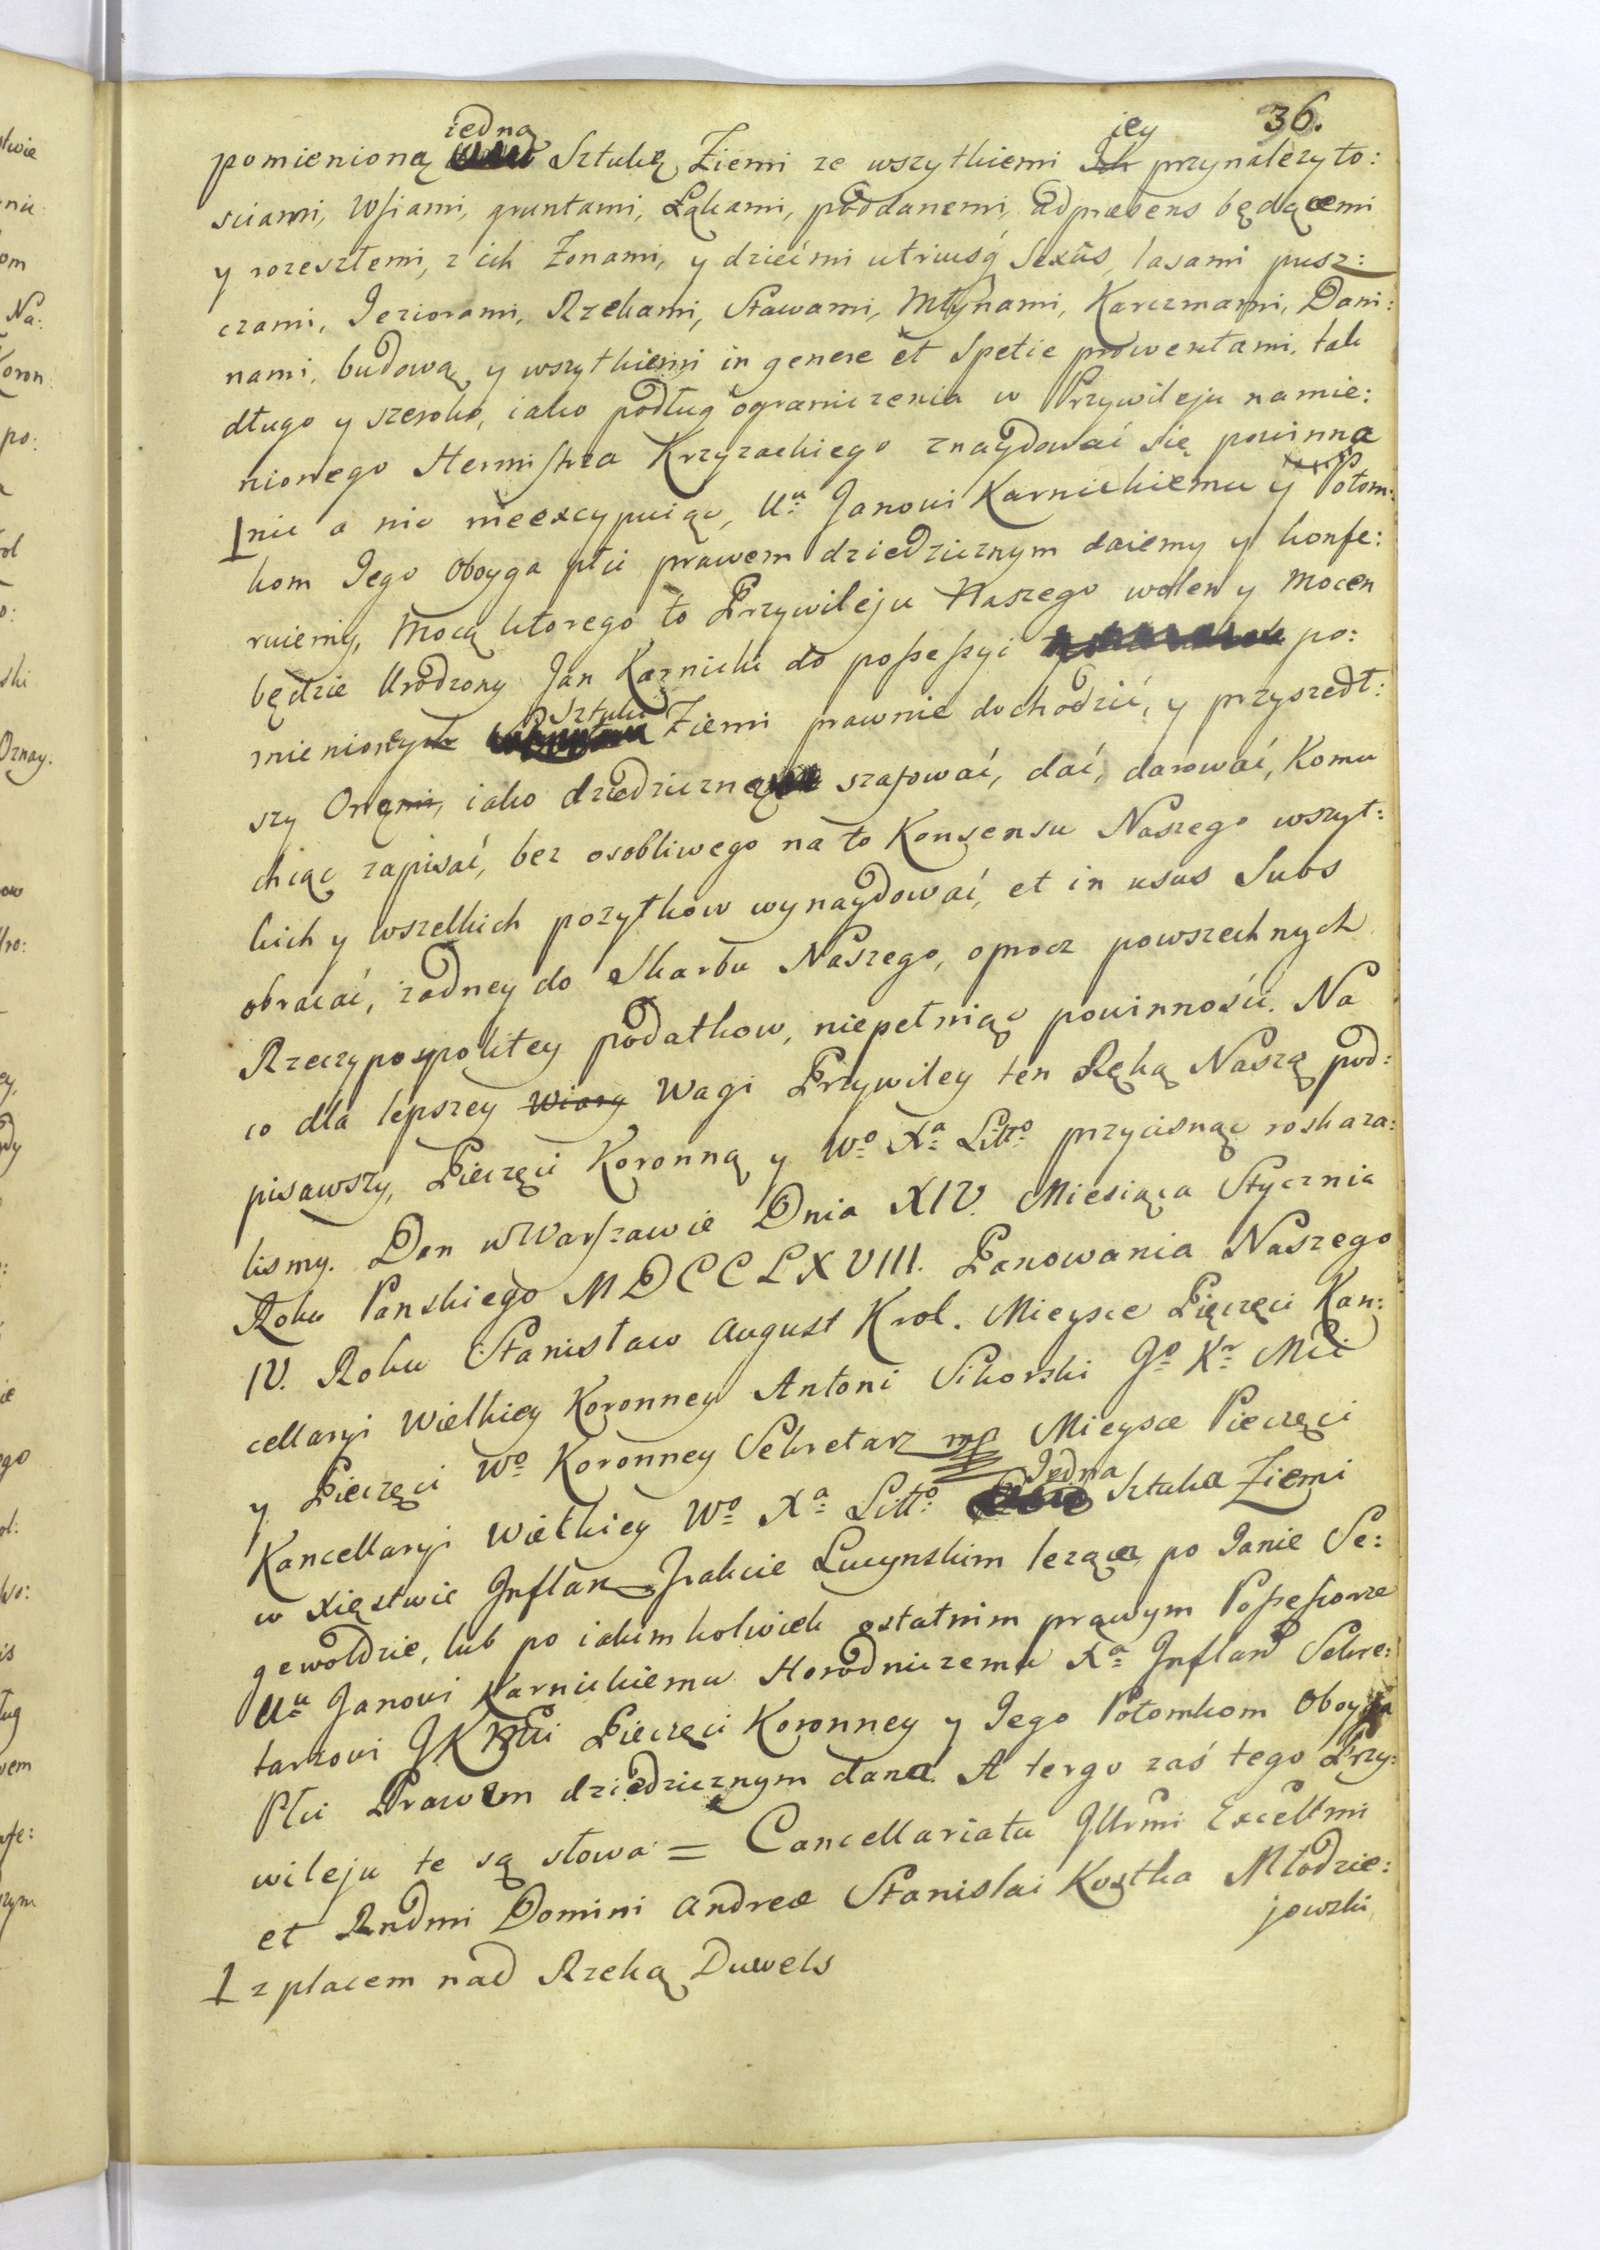 36.
iedną iey
pomienioną Sztukę Ziemi ze wszytkiemi Ich przynalezyto:
sciami, Wsiami, gruntami, Łąkami, poddanemi, adpraesens będącemi
y rozeszłemi, z ich Zonami, y dziećmi utriusq́ Sexûs, lasami pusz:
czami, Jeziorami, Rzekami, Stawami, Młynami, Karczmami, Dani:
nami, budową y wszytkiemi in genere et Spetie prowentami, tak
długo y szeroko, iako podług ograniczenia w Przywileju namie:
nionego Hermistrza Krzyzackiego znaydować się powinna
nic a nic nieexcypuiąc, Uu Janowi Karnickiemu y Potom:
kom Jego Oboyga płci prawem dziedzicznym daiemy y konfe:
ruiemy, Mocą ktorego to Przywileju Naszego wolen y Mocen
będzie Urodzony Jan Karnicki do possessyi po:
mienioney Sztuki Ziemi prawnie dochodzić, y przyszedł:
szy Oną, iako dziedziczną szafować, dać, darować, Komu
chcąc zapisać, bez osobliwego na to Konsensu Naszego wszyt:
kich y wszelkich pozytkow wynaydować, et in usus Suos
obracać, zadney do Skarbu Naszego, oprocz powszechnych
Rzeczypospolitey podatkow, niepełniąc powinności. Na
co dla lepszey Wiary Wagi Przywiley ten Ręką Naszą pod:
pisawszy, Pieczęci Koronną y Wo Xa Litto przycisnąc roskaza:
lismy. Dan w Warszawie Dnia XIV. Miesiąca Stycznia
Roku Panskiego MDCCLXVIII. Panowania Naszego
IV. Roku Stanisław August Krol. Mieysce Pięczęci Kan:
cellaryi Wielkiey Koronney Antoni Sikorski Jo Kr Mci
y Pieczęci Wo Koronney Sekretarz mp Mieysce Pieczęci
Kancellaryi Wielkiey Wo Xa Litto Jedna Sztuka Ziemi
w Xięstwie Inflan Trakcie Lucynskim leząca, po Janie Se:
gewoldzie, lub po iakimkolwiek ostatnim prawym Possessorze
Uu Janowi Karnickiemu Horodniczemu Xa Inflan Sekre:
tarzowi JKMci Pieczęci Koronney y Jego Potomkom Oboyga
Płci Prawem dziedzicznym dana. A tergo zaś tego Przy:
wileju te są słowa = Cancellariatu Illrmi Excellmi
et Rndmi Domini Andreae Stanislai Kostka Młodzie:
jowski
z placem nad Rzeką Duwels